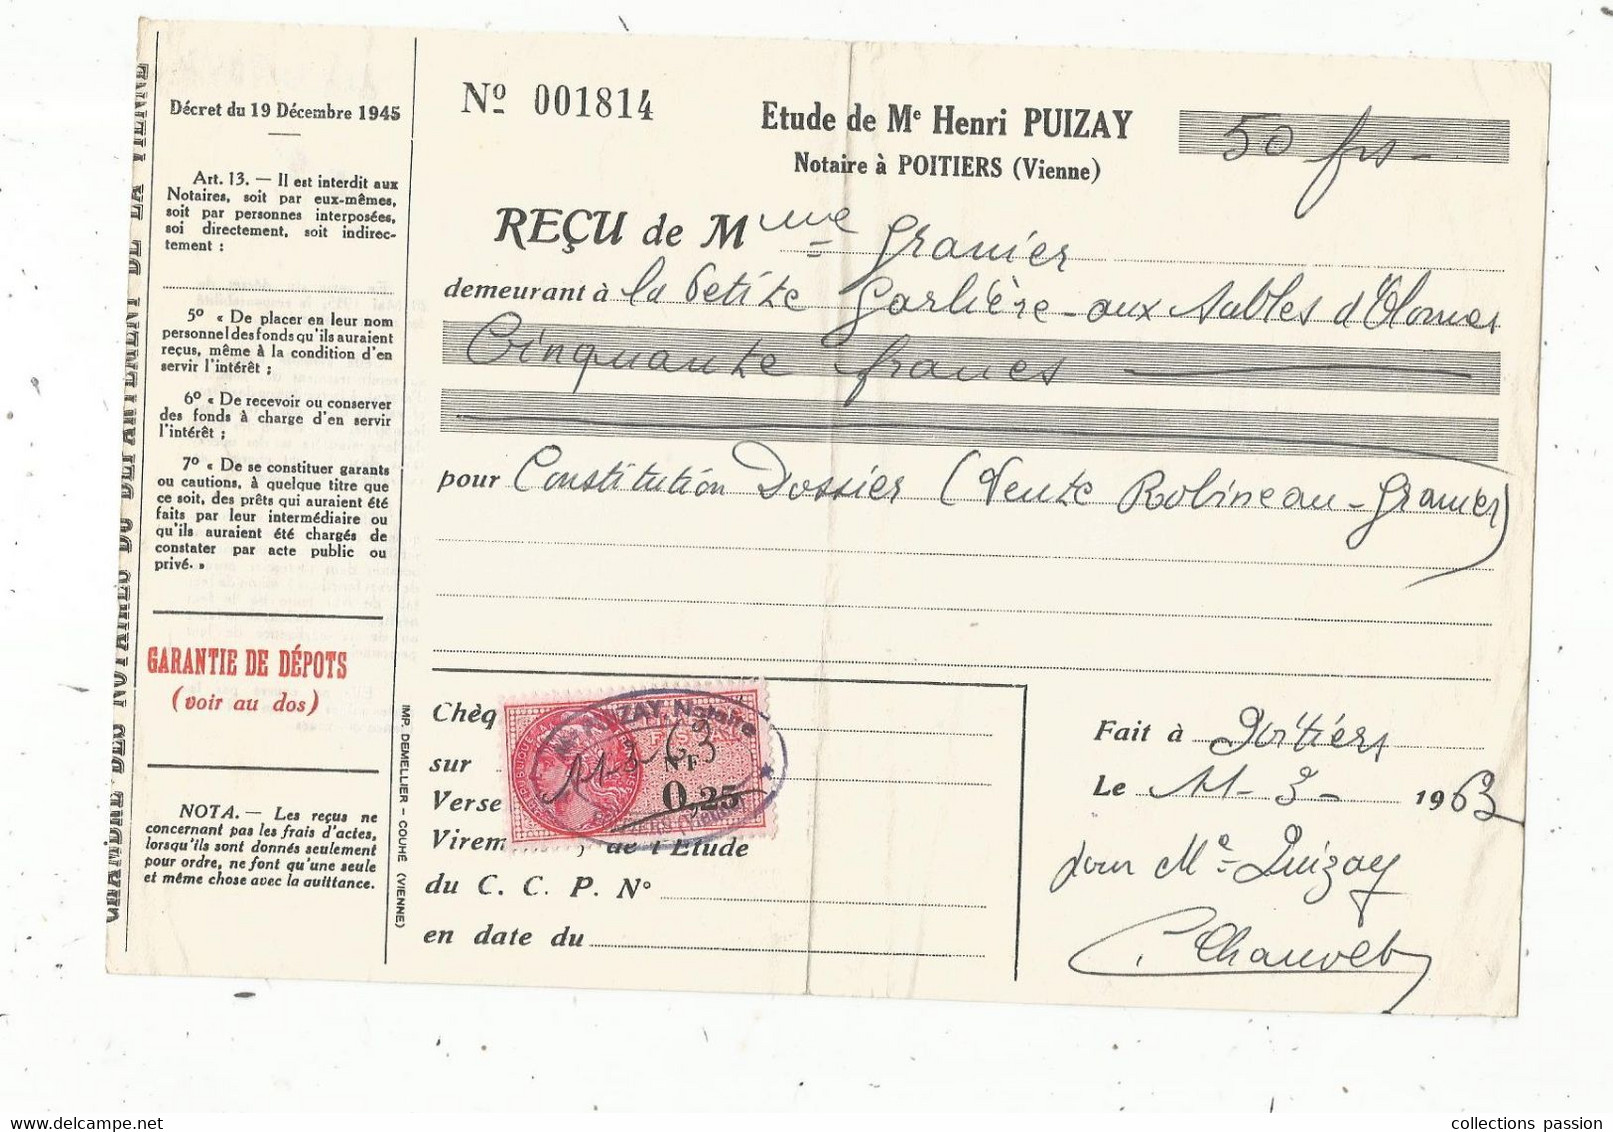 CHAMBRE DES NOTAIRES DU DEPARTEMENT DE LA VIENNE
Décret du 19 Décembre 1945
Art. 13. — Il est interdit aux
Notaires, soit par eux-mêmes,
soit par personnes interposées,
soi directement, soit indirec-
tement :
5º « De placer en leur nom
personnel des fonds qu'ils auraient
reçus, même à la condition d'en
servir l'intérêt ;
6º « De recevoir ou conserver
des fonds à charge d'en servir
l'intérêt ;
7º « De se constituer garants
ou cautions, à quelque titre que
ce soit, des prêts qui auraient été
faits par leur intermédiaire ou
qu'ils auraient été chargés de
constater par acte public ou
privé. »
GARANTIE DE DÉPOTS
(voir au dos)
NOTA. — Les reçus ne
concernant pas les frais d'actes,
lorsqu'ils sont donnés seulement
pour ordre, ne font qu'une seule
et même chose avec la quittance.
IMP. DEMELLIER - COUHÉ (VIENNE)
Nº 001814
Etude de Me Henri PUIZAY
Notaire à POITIERS (Vienne)
50 frs -
REÇU de Mme Granier
demeurant à la Petite Garlière - aux Sables d'Olonnes
Cinquante francs
pour Constitution Dossier (Vente Robineau-Granier)
Chèq
sur
Verse
Virem , de l'Etude
du C. C. P. N°
en date du
Me PUIZAY, Notaire
11-3-63
NF
0,25
POITIERS (Vienne)
Fait à Poitiers
Le 11-3- 1963
pour Me Puizay
Chauvet
collections passion